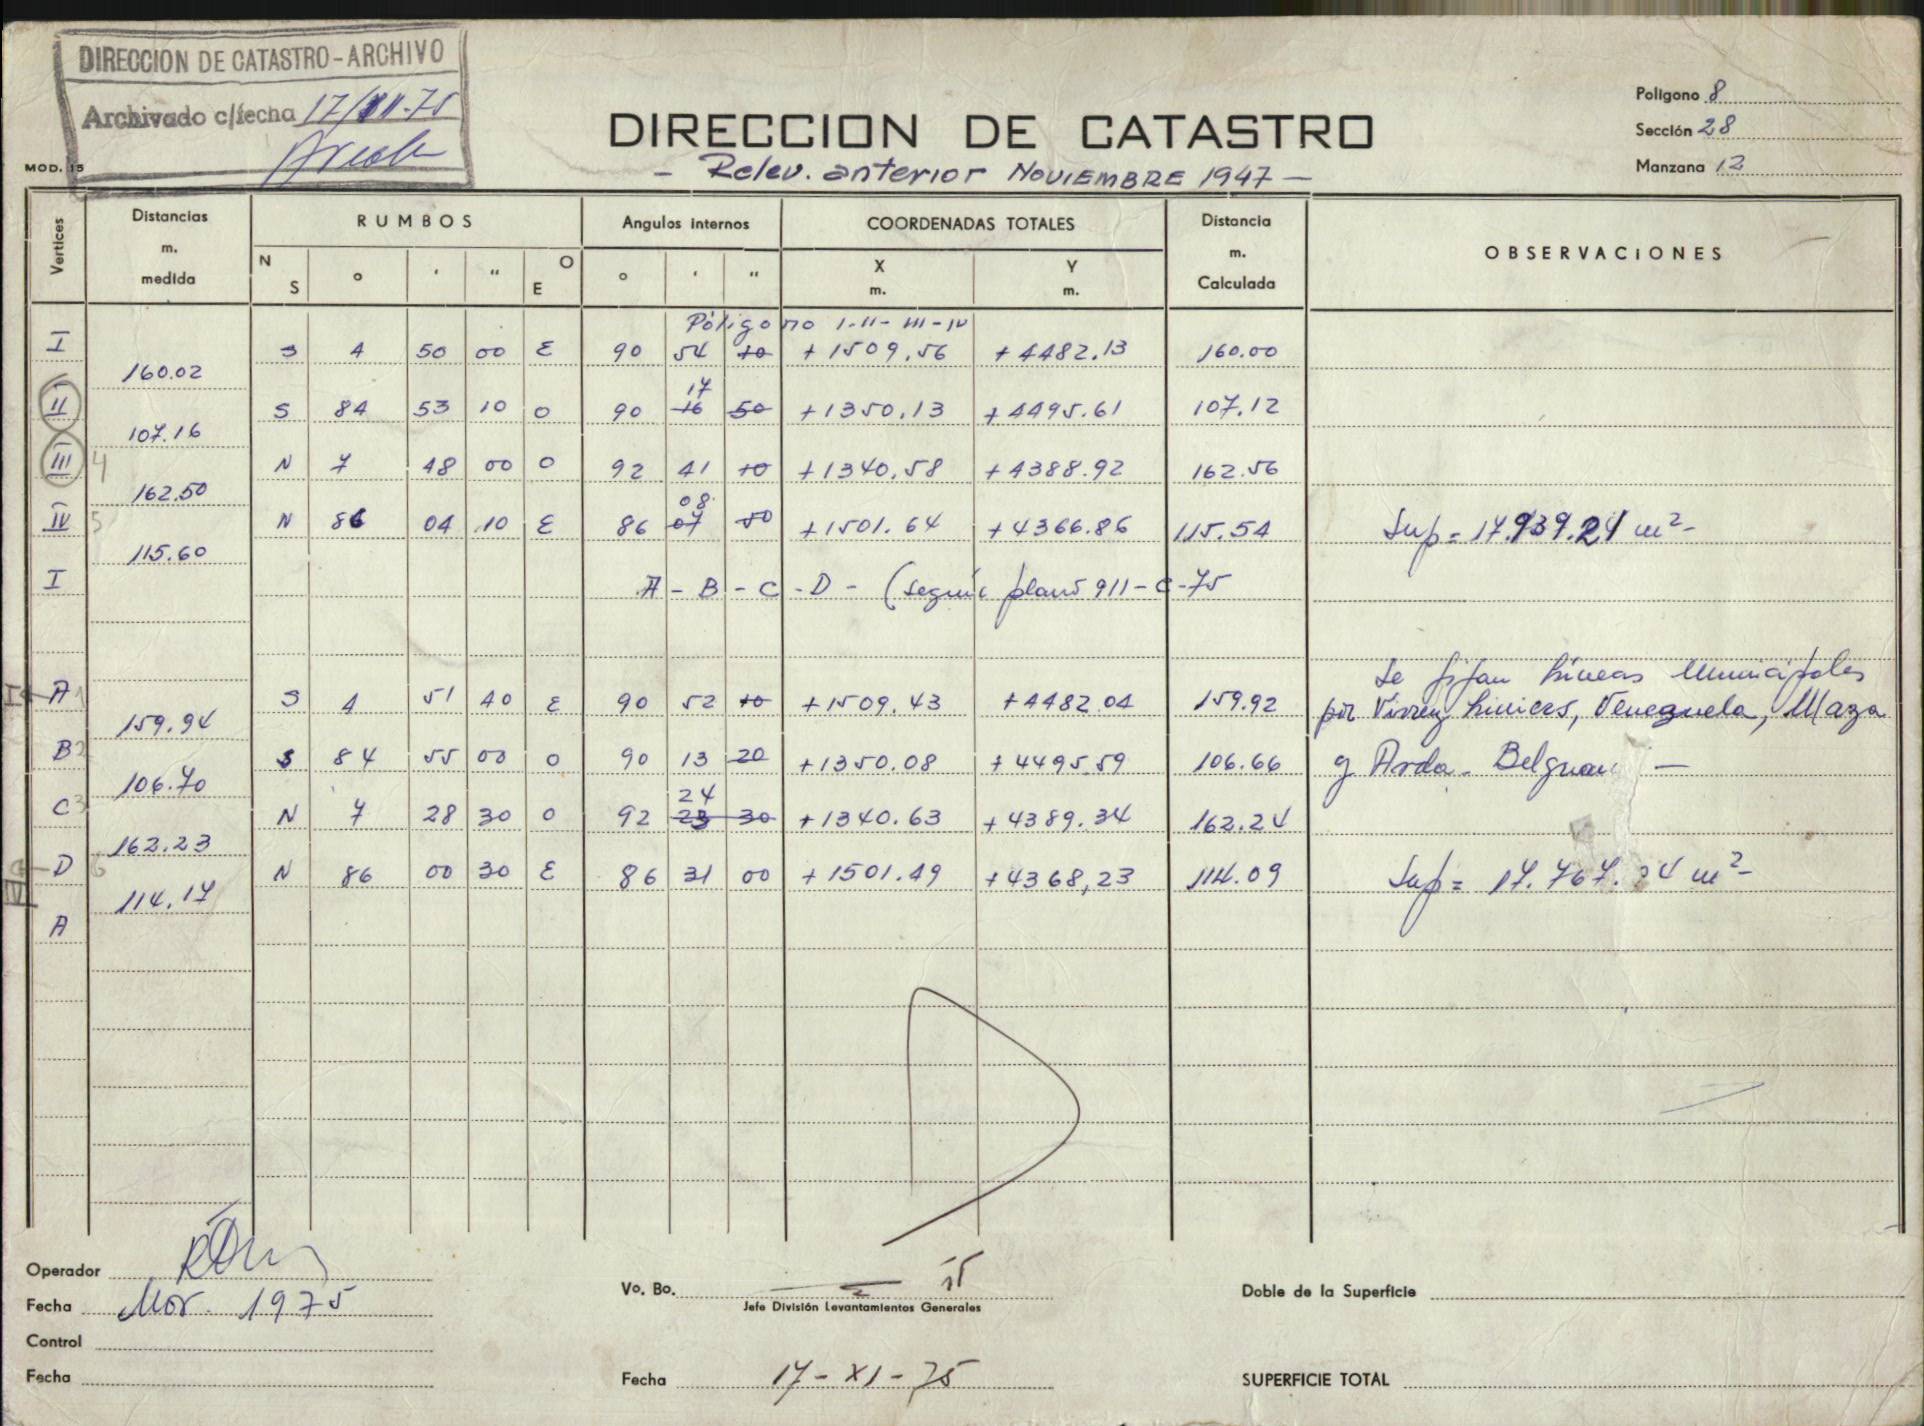 DIRECCION DE CATASTRO-ARCHIVO
Archivado c/fecha 17/XII-75
MOD. 15
DIRECCION DE CATASTRO
- Relev. anterior NOVIEMBRE 1947 -
Poligono 8
Sección 28
Manzana 12
Vertices Distancias m. medida RUMBOS N S o ' " O E Angulos internos o ' " COORDENADAS TOTALES X m. Y m. Distancia m. Calculada OBSERVACIONES
Póligono I-II-III-IV
I S 4 50 00 E 90 54 10 +1509,56 +4482,13 160.00
160.02
17
II S 84 53 10 O 90 16 50 +1350,13 +4495.61 107.12
107.16
III 4 N 7 48 00 O 92 41 10 +1340,58 +4388.92 162.56
162.50
08
IV 5 N 86 04 10 E 86 07 50 +1501.64 +4366.86 115.54 Sup = 17.939.24 m2-
115.60
I A - B - C - D - (según plano 911-C-75
Se fijan Líneas Municipales
I A 1 S 4 51 40 E 90 52 10 +1509.43 +4482.04 159.92 por Virrey Liniers, Venezuela, Maza
159.94
B 2 S 84 55 00 O 90 13 20 +1350.08 +4495.59 106.66 y Avda. Belgrano -
106.70
24
C 3 N 7 28 30 O 92 23 30 +1340.63 +4389.34 162.24
162.23
IV D 6 N 86 00 30 E 86 31 00 +1501.49 +4368,23 114.09 Sup = 17.767. m2-
114.17
A
Operador
Fecha Nov. 1975
Control
Fecha
Vo. Bo.
Jefe División Levantamientos Generales
Fecha 17-XI-75
Doble de la Superficie
SUPERFICIE TOTAL